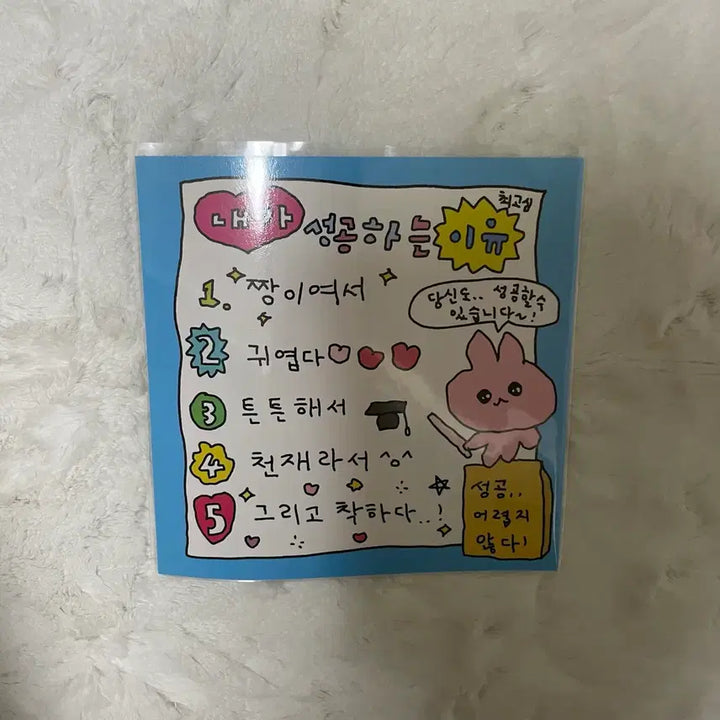 최고심
내가 성공하는 이유
1. 짱이여서
2 귀엽다
3 튼튼해서
4 천재라서 ^o^
5 그리고 착하다..!
당신도.. 성공할수
있습니다~!
성공..
어렵지
않다!